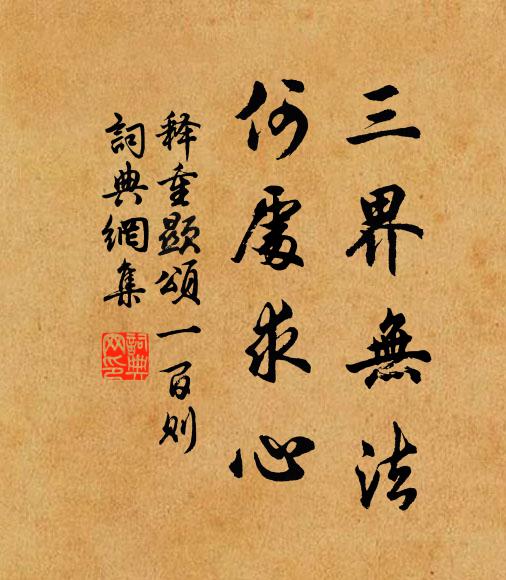 三界無法
何處求心
释重顯頌一百则
詞典網集
詞典网印